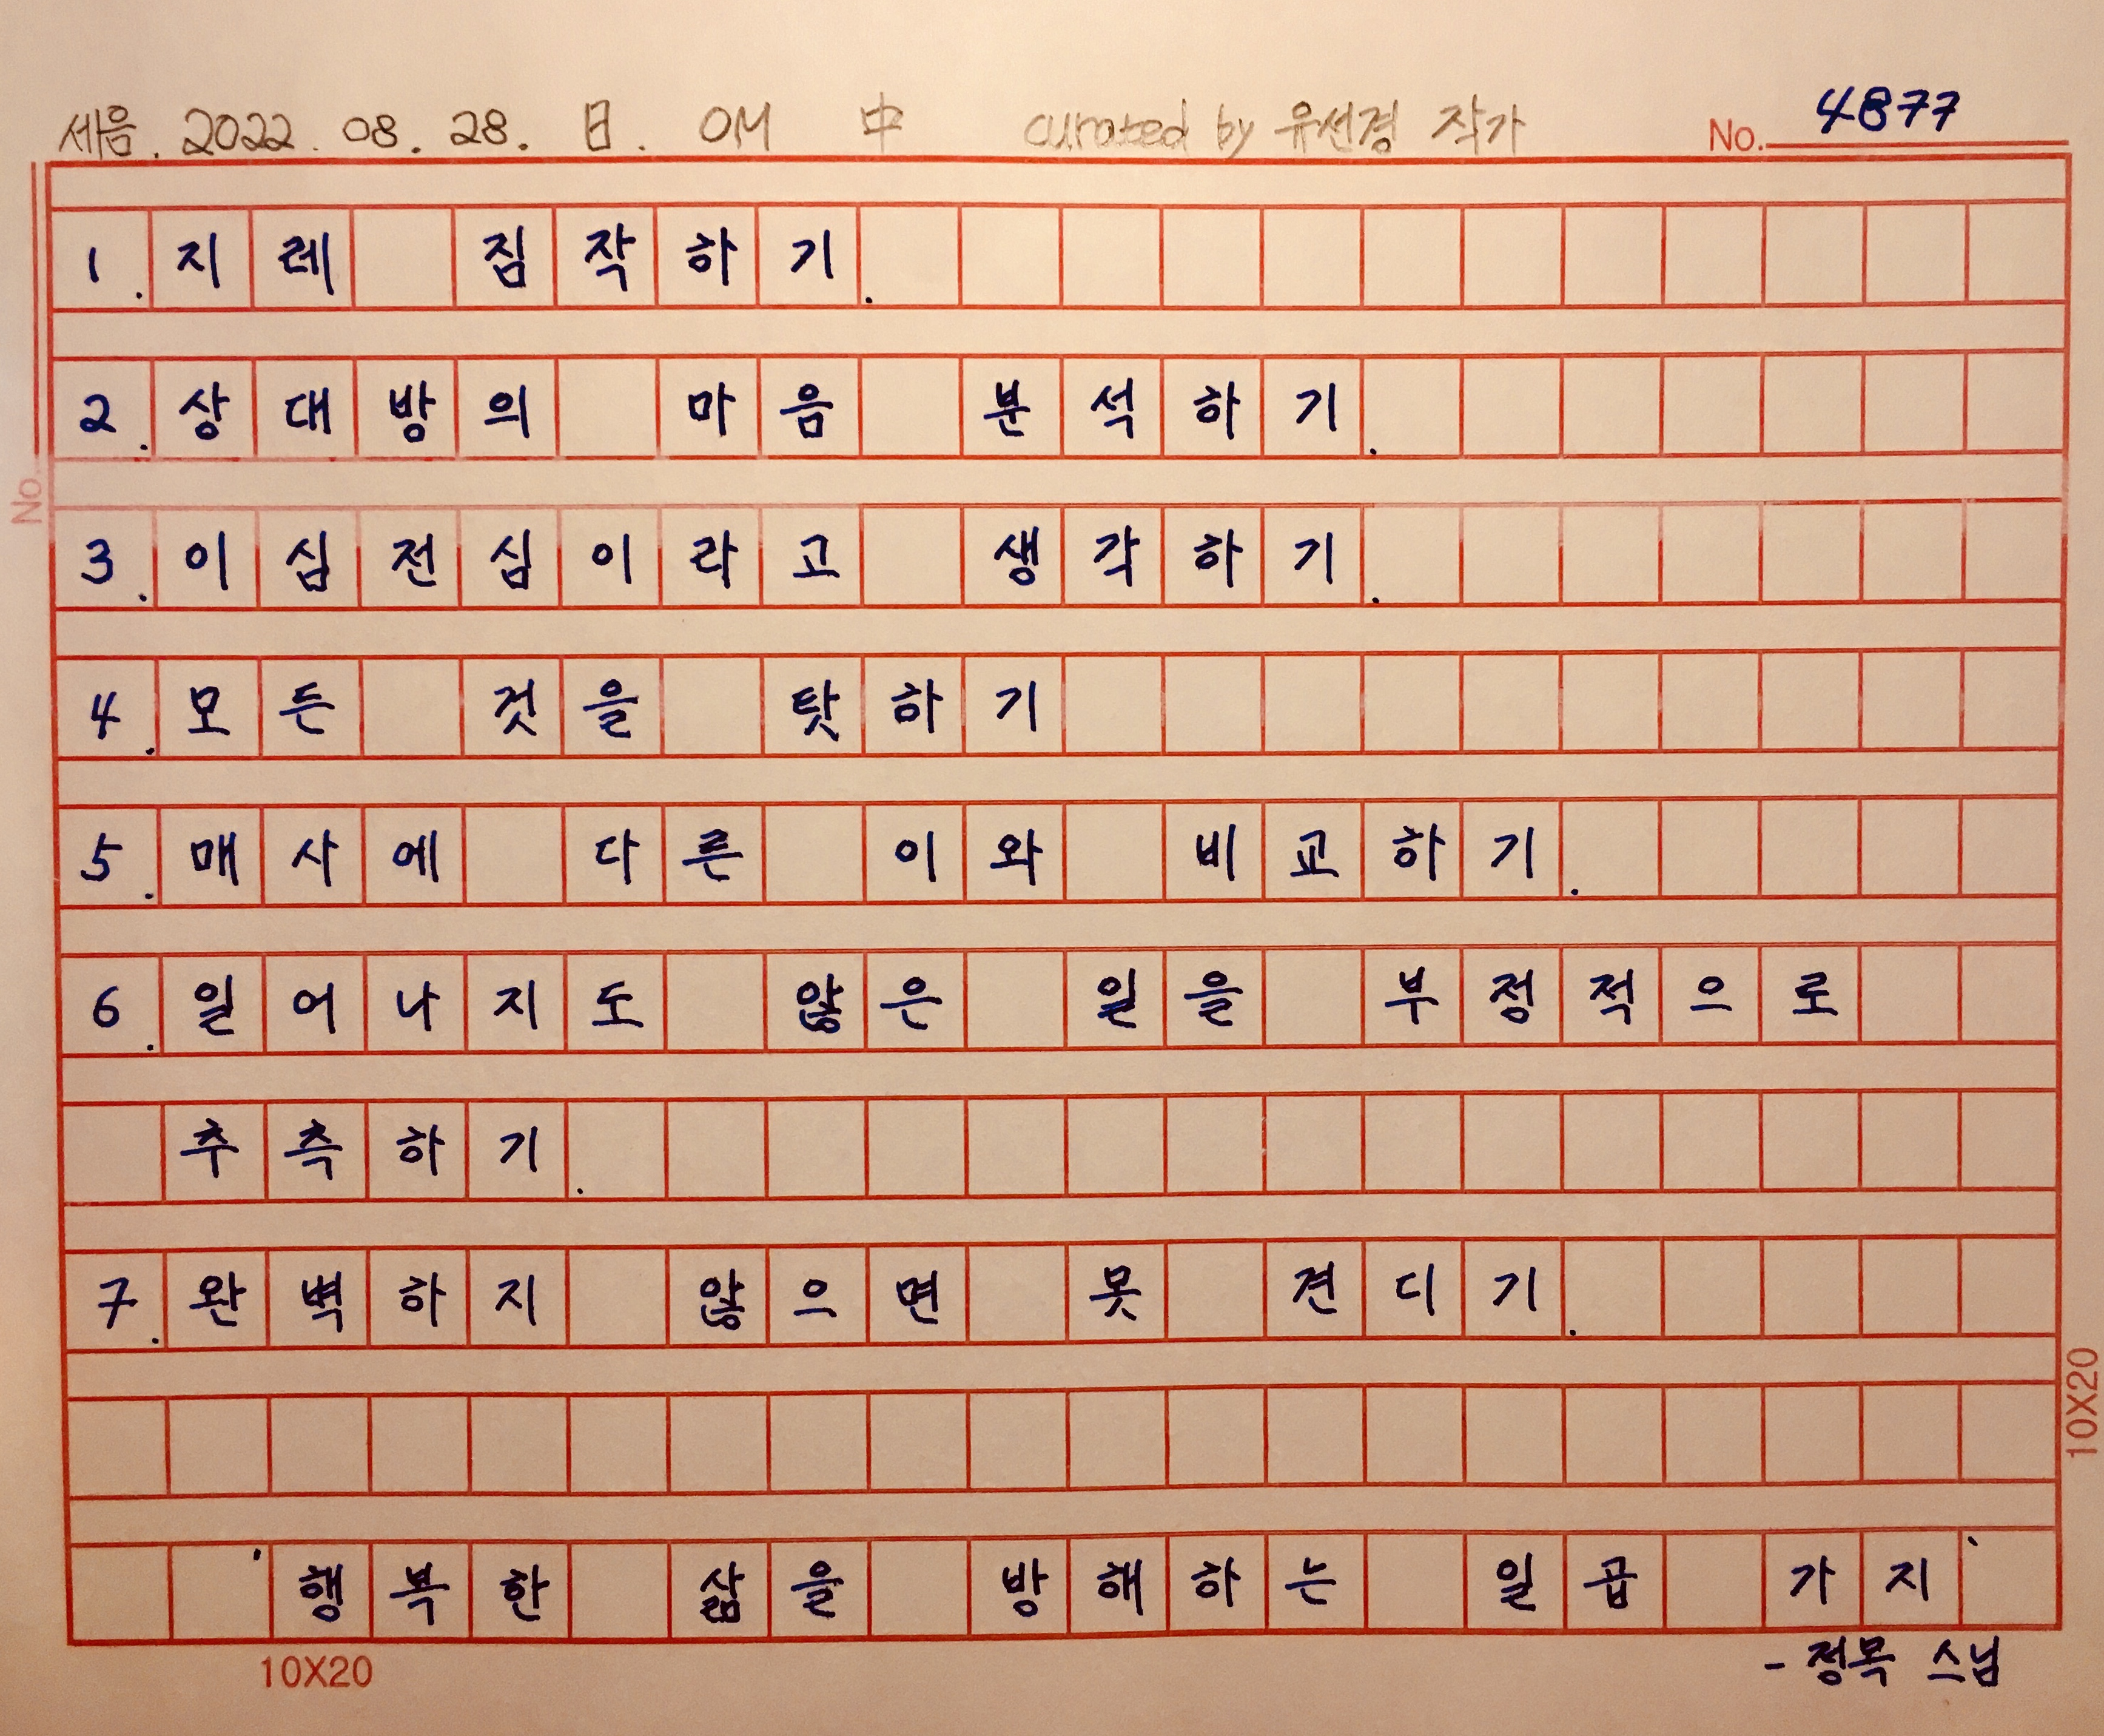 세음. 2022. 08. 28. 日. OM 中 curated by 유선경 작가 No. 4877
1. 지레 짐작하기.
2. 상대방의 마음 분석하기.
No.
3. 이심전심이라고 생각하기.
4. 모든 것을 탓하기
5. 매사에 다른 이와 비교하기.
6. 일어나지도 않은 일을 부정적으로
추측하기.
7. 완벽하지 않으면 못 견디기.
10X20
'행복한 삶을 방해하는 일곱 가지'
- 정목 스님
10X20